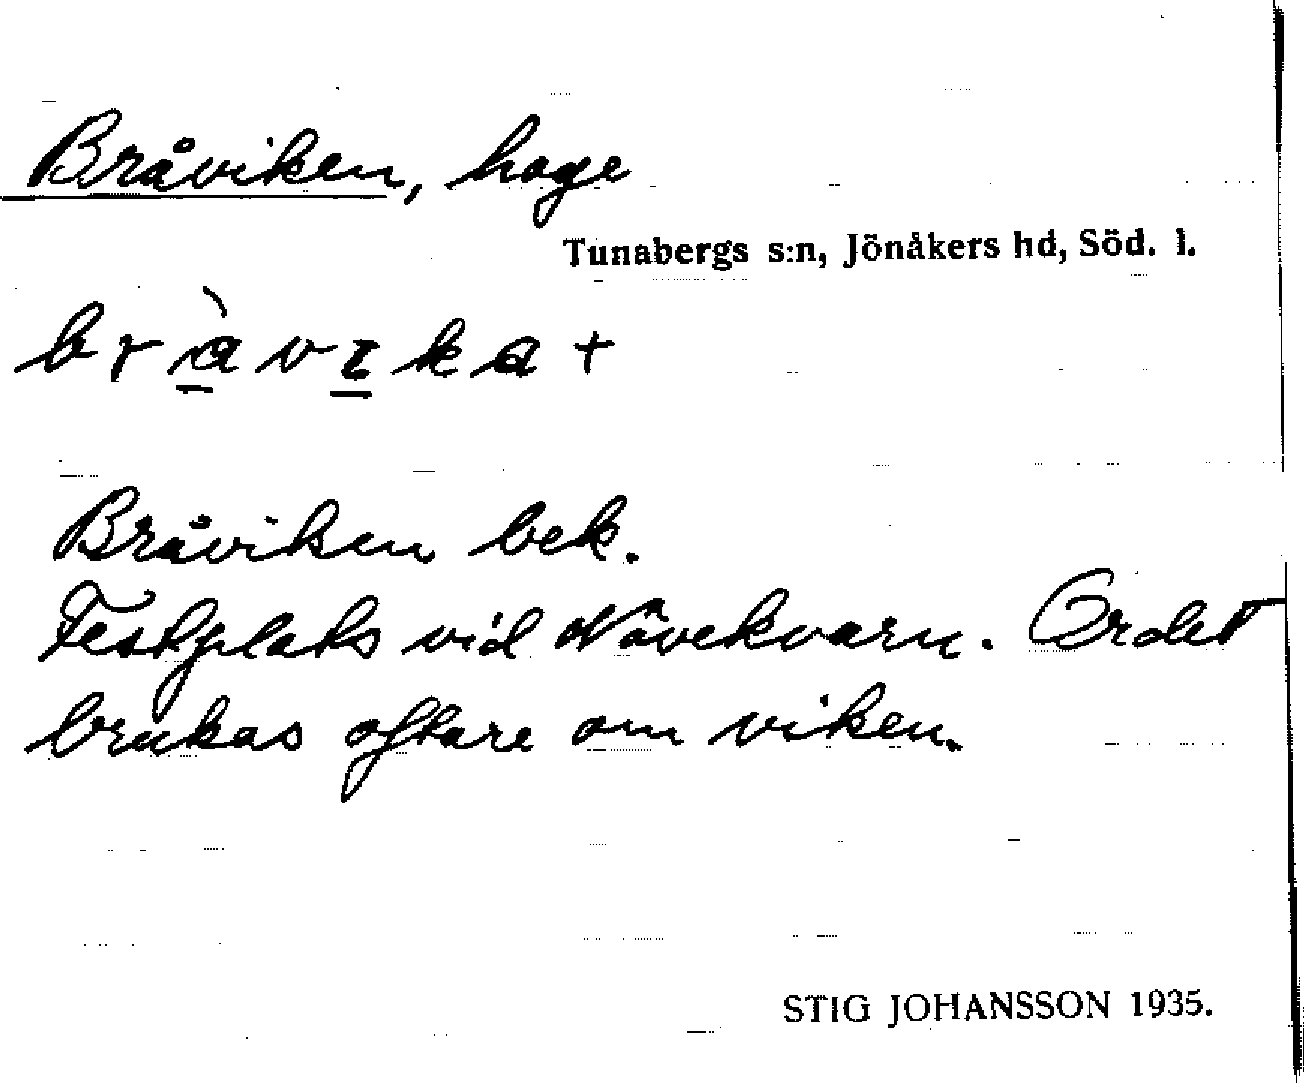 Bråviken, hage
Tunabergs s:n, Jönåkers hd, Söd. l.
Bråviken bek.
Festplats vid Nävekvarn. Ordet
brukas oftare om viken.
STIG JOHANSSON 1935.